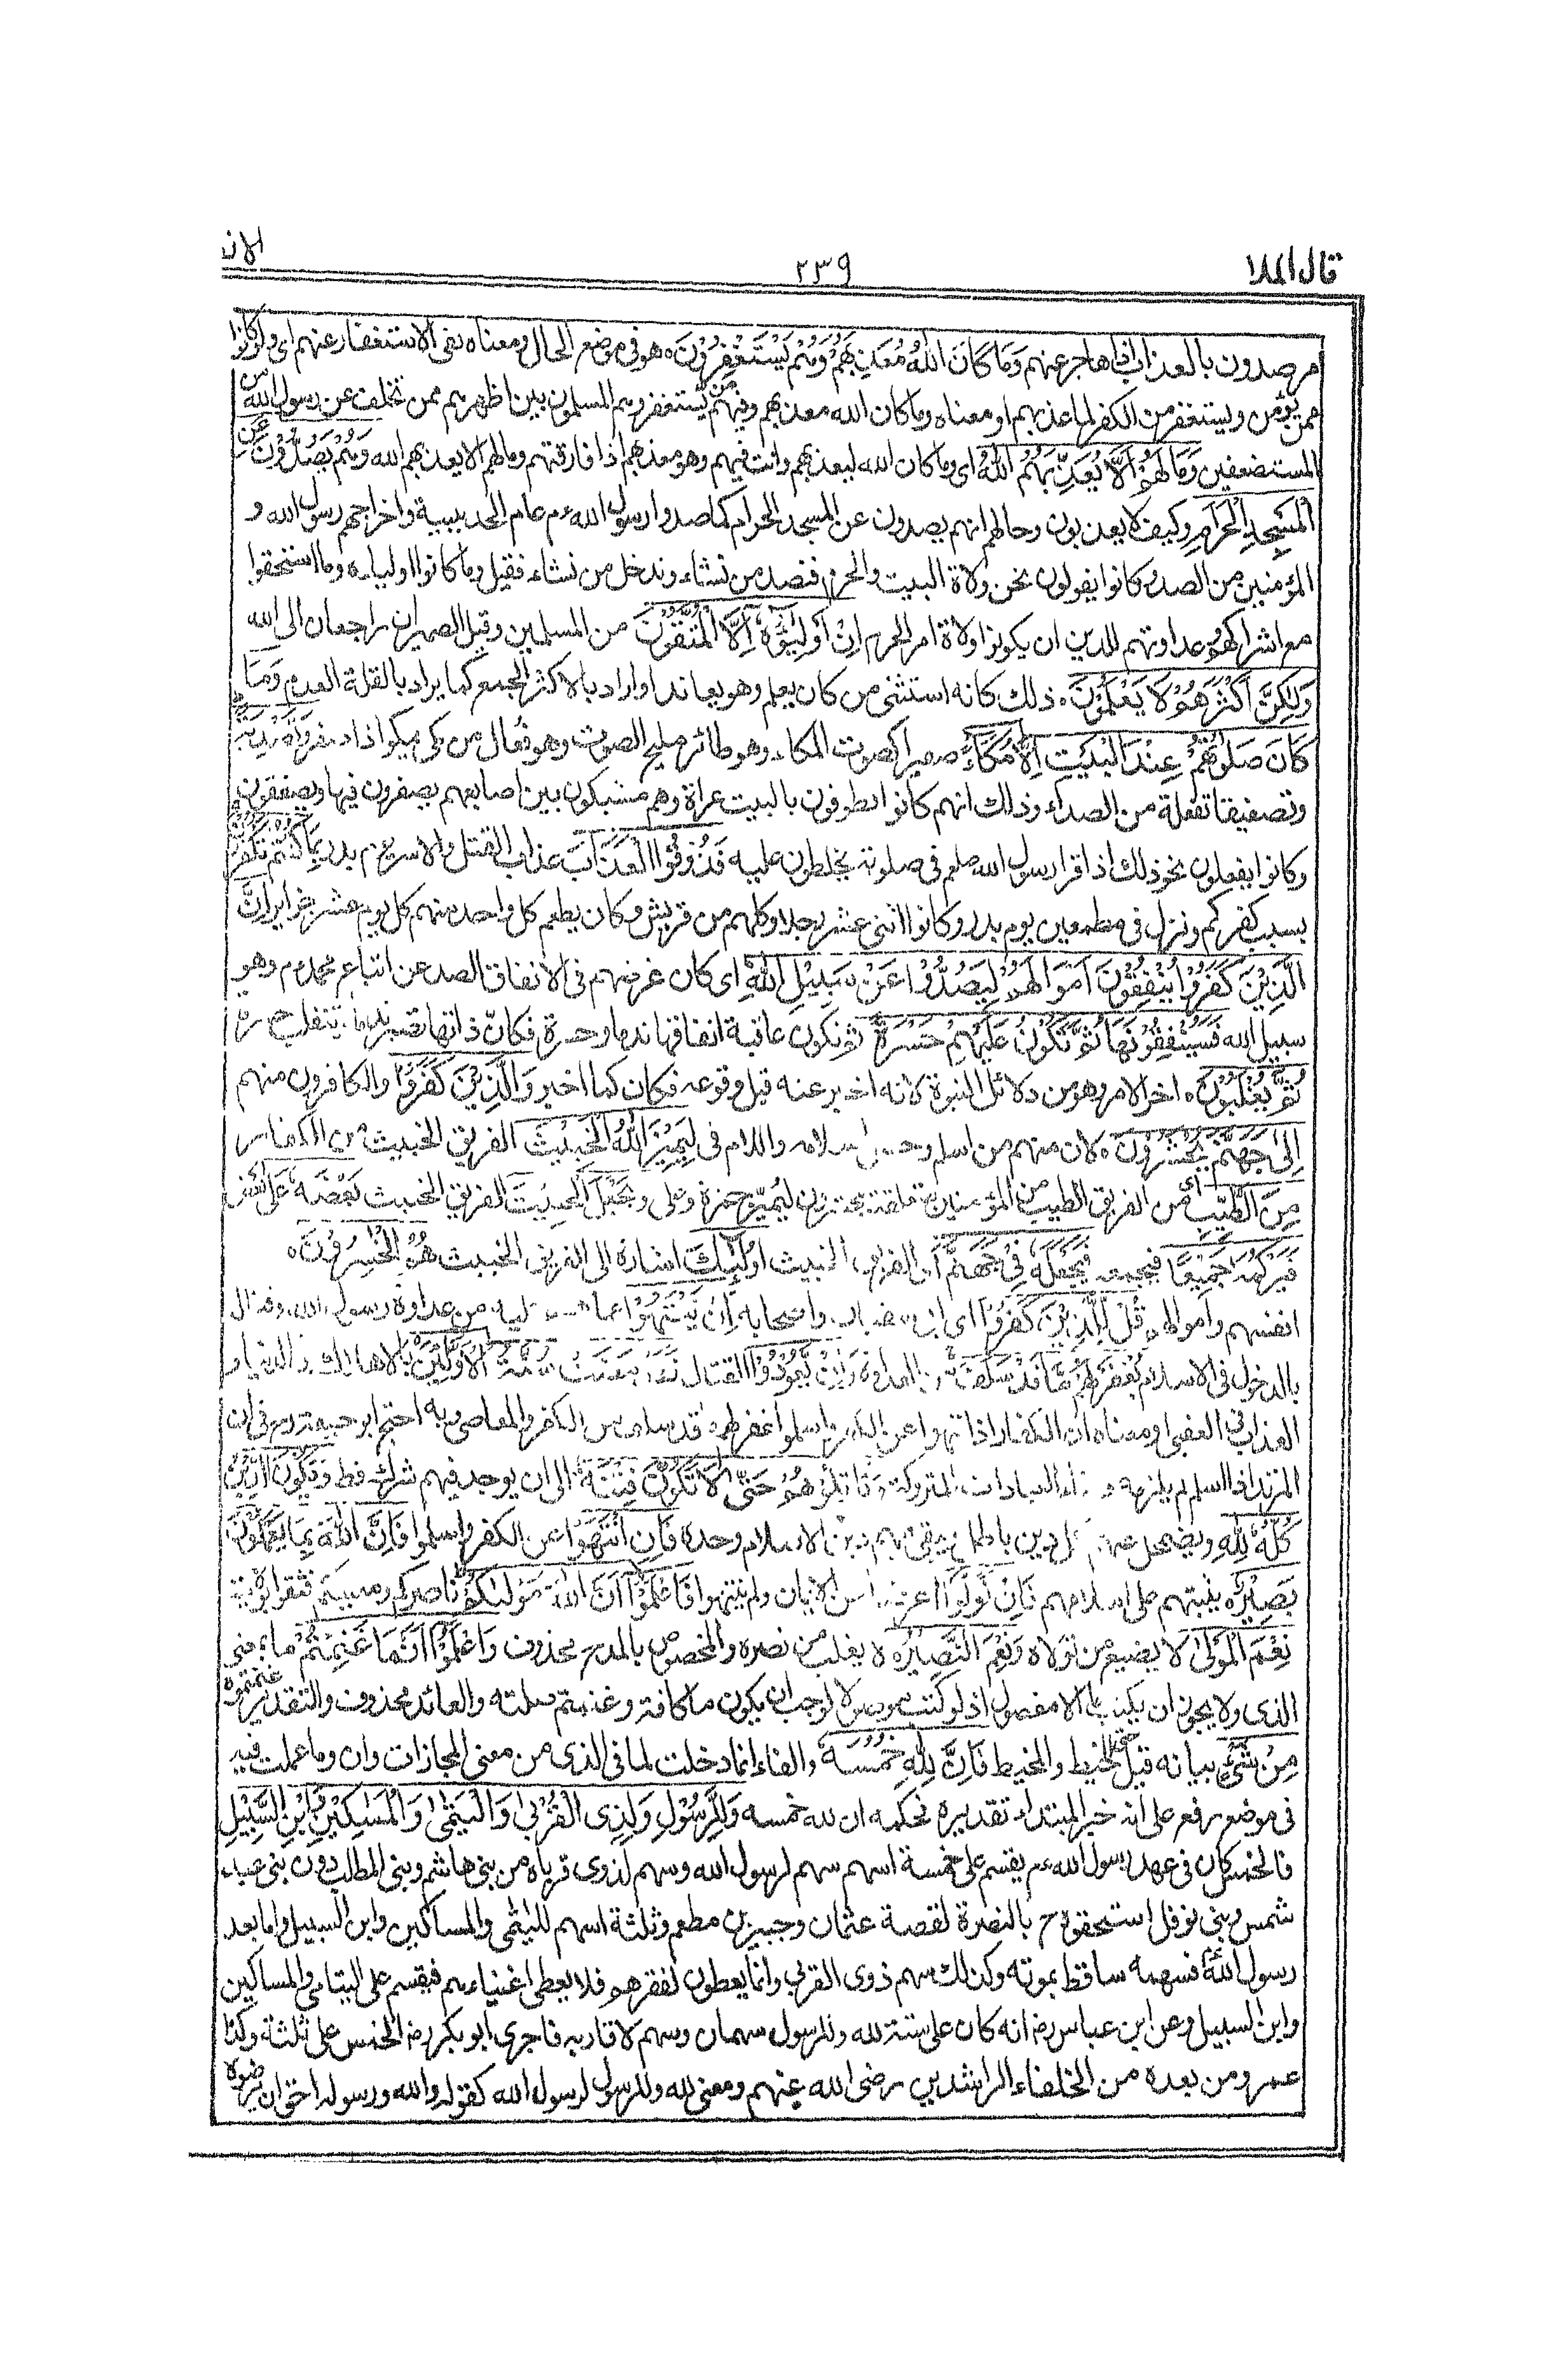 قال الملا ٢٣٩ الان
مرصدون بالعذاب اذا هاجر عنهم وَمَا كَانَ اللهُ مُعَذِّبَهُمْ وَهُمْ يَسْتَغْفِرُوْنَ ه هو فى موضع الحال ومعناه نفى الاستغفار عنهم اى ولو كانوا
ممن يؤمن ويستغفر من الكفر لما عذبهم او معناه وما كان الله معذبهم وفيهم من يستغفر وهم المسلمون بين اظهرهم ممن تخلف عن رسول الله من
المستضعفين وَمَا لَهُمْ اَلَّا يُعَذِّبَهُمُ اللهُ اى وما كان الله ليعذبهم وانت فيهم وهو معذبهم اذا فارقتهم ومالهم الا يعذبهم الله وَهُمْ يَصُدُّوْنَ عَنِ
الْمَسْجِدِ الْحَرَامِ وكيف لا يعذبون وحالهم انهم يصدون عن المسجد الحرام كما صدوا رسول الله ءم عام الحديبية واخراجهم رسول الله و
المؤمنين من الصد وكانوا يقولون نحن ولاة البيت والحرم فنصد من نشاء وندخل من نشاء فقيل وما كانوا اولياءه وما استحقوا
مع اشراكهم وعداوتهم للدين ان يكونوا ولاة امر الحرم اِنْ اَوْلِيٰٓؤُهٗ اِلَّا الْمُتَّقُوْنَ من المسلمين وقيل الضميران راجعان الى الله
وَلٰكِنَّ اَكْثَرَهُمْ لَا يَعْلَمُوْنَ ه ذلك كانه استثنى من كان يعلم وهو يعاند او اراد بالاكثر الجميع كما يراد بالقلة العدم وَمَا
كَانَ صَلَاتُهُمْ عِنْدَ الْبَيْتِ اِلَّا مُكَآءً صفيرا كصوت المكاء وهو طائر مليح الصوت وهو فُعال من مكى يمكوا اذا صفر وَتَصْدِيَةً
وتصفيقا تفعلة من الصداء وذلك انهم كانوا يطوفون بالبيت عراة وهم مشبكون بين اصابعهم يصفرون فيها ويصفقون
وكانوا يفعلون نحو ذلك اذا قرا رسول الله صلعم فى صلوته يخلطون عليه فَذُوْقُوا الْعَذَابَ عذاب القتل والاسر يوم بدر بِمَا كُنْتُمْ تَكْفُرُوْنَ
بسبب كفركم ونزل فى مطعمين يوم بدر وكانوا اثنى عشر رجلا وكلهم من قريش وكان يطعم كل واحد منهم كل يوم عشر جزائر اِنَّ
الَّذِيْنَ كَفَرُوْا يُنْفِقُوْنَ اَمْوَالَهُمْ لِيَصُدُّوْا عَنْ سَبِيْلِ اللهِ اى كان غرضهم فى الانفاق الصد عن اتباع محمد ءم وهو
سبيل الله فَسَيُنْفِقُوْنَهَا ثُمَّ تَكُوْنُ عَلَيْهِمْ حَسْرَةً ثم تكون عاقبة انفاقها ندما وحسرة فكانّ ذاتها تصير ندما وتنقلب حسرة
ثُمَّ يُغْلَبُوْنَ ه اخر الامر وهو من دلائل النبوة لانه اخبر عنه قبل وقوعه فكان كما اخبر وَالَّذِيْنَ كَفَرُوْا والكافرون منهم
اِلٰى جَهَنَّمَ يُحْشَرُوْنَ ه لان منهم من اسلم وحسن اسلامه واللام فى لِيَمِيْزَ اللهُ الْخَبِيْثَ الفريق الخبيث من الكفار
مِنَ الطَّيِّبِ اى من الفريق الطيب من المؤمنين متعلقة بيحشرون ليُميّز حمزة وعلى وَيَجْعَلَ الْخَبِيْثَ الفريق الخبيث بَعْضَهٗ عَلٰى بَعْضٍ
فَيَرْكُمَهٗ جَمِيْعًا فيجمعه فَيَجْعَلَهٗ فِيْ جَهَنَّمَ اى الفريق الخبيث اُولٰٓئِكَ اشارة الى الفريق الخبيث هُمُ الْخٰسِرُوْنَ ه
انفسهم واموالهم قُلْ لِّلَّذِيْنَ كَفَرُوْا اى ابى سفيان واصحابه اِنْ يَّنْتَهُوْا عما هم عليه من عداوة رسول الله وقتال
بالدخول فى الاسلام يُغْفَرْ لَهُمْ مَّا قَدْ سَلَفَ من العداوة وَاِنْ يَّعُوْدُوْا لقتال فَقَدْ مَضَتْ سُنَّةُ الْاَوَّلِيْنَ بالاهلاك فى الدنيا و
العذاب فى العقبى او معناه ان الكفار اذا انتهوا عن الكفر واسلموا غفر لهم ما قد سلف من الكفر والمعاصى وبه احتج ابو حنيفة رح فى ان
المرتد اذا اسلم لم يلزمه قضاء العبادات المتروكة وَقَاتِلُوْهُمْ حَتّٰى لَا تَكُوْنَ فِتْنَةٌ الى ان لا يوجد فيهم شرك قط وَيَكُوْنَ الدِّيْنُ
كُلُّهٗ لِلّٰهِ ويضمحل عنهم كل دين باطل ويبقى فيهم دين الاسلام وحده فَاِنِ انْتَهَوْا عن الكفر واسلموا فَاِنَّ اللهَ بِمَا يَعْمَلُوْنَ
بَصِيْرٌ ه يثيبهم على اسلامهم وَاِنْ تَوَلَّوْا اعرضوا عن الايمان ولم ينتهوا فَاعْلَمُوْٓا اَنَّ اللهَ مَوْلٰىكُمْ ناصركم ومعينكم فثقوا بولايته
نِعْمَ الْمَوْلٰى لا يضيع من تولاه وَنِعْمَ النَّصِيْرُ ه لا يغلب من نصره والمخصوص بالمدح محذوف وَاعْلَمُوْٓا اَنَّمَا غَنِمْتُمْ ما بمعنى
الذى ولا يجوز ان يكتب الا مفصول اذ لو كتب موصولا لوجب ان يكون ما كافة وغنمتم صلته والعائد محذوف والتقدير غنمتموه
مِنْ شَيْءٍ بيانه قيل حتى الخيط والمخيط فَاَنَّ لِلّٰهِ خُمُسَهٗ والفاء انما دخلت لما فى الذى من معنى المجازات وان وما عملت فيه
فى موضع رفع على انه خبر المبتداء تقديره فحكمه ان لله خمسه وَلِلرَّسُوْلِ وَلِذِى الْقُرْبٰى وَالْيَتٰمٰى وَالْمَسٰكِيْنِ وَابْنِ السَّبِيْلِ
فالخمس كان فى عهد رسول الله ءم يقسم على خمسة اسهم سهم لرسول الله وسهم لذوى قرباه من بنى هاشم وبنى المطلب دون بنى عبد
شمس وبنى نوفل استحقوه ح بالنصرة لقصة عثمان وجبير بن مطعم وثلثة اسهم لليتٰمى والمساكين وابن السبيل واما بعد
رسول الله ءم فسهمه ساقط بموته وكذلك سهم ذوى القربى وانما يعطون لفقرهم فلا يعطى اغنياءهم فيقسم على اليتامى والمساكين
وابن السبيل وعن ابن عباس رضہ انه كان على ستة لله وللرسول سهمان وسهم لاقاربه فاجرى ابو بكر رضہ الخمس على ثلثة وكذا
عمر ومن بعده من الخلفاء الراشدين رضى الله عنهم ومعنى لله وللرسول لرسول الله كقوله والله ورسوله احق ان يرضوه